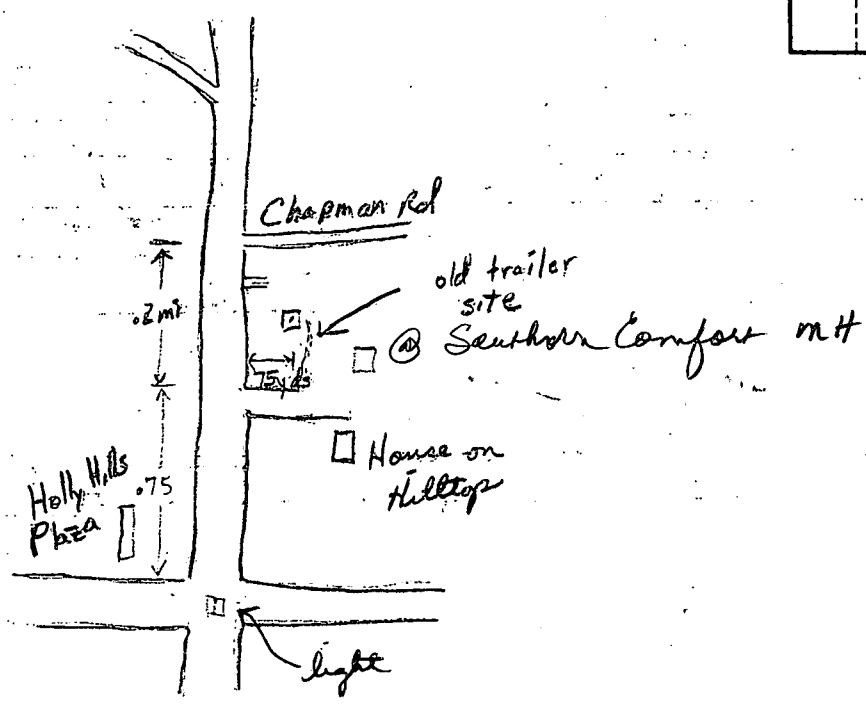 Chapman Rd
old trailer
site
.2mi
@ Southern Comfort MH
75yds
House on
Hilltop
Holly Hills
Plaza
.75
light